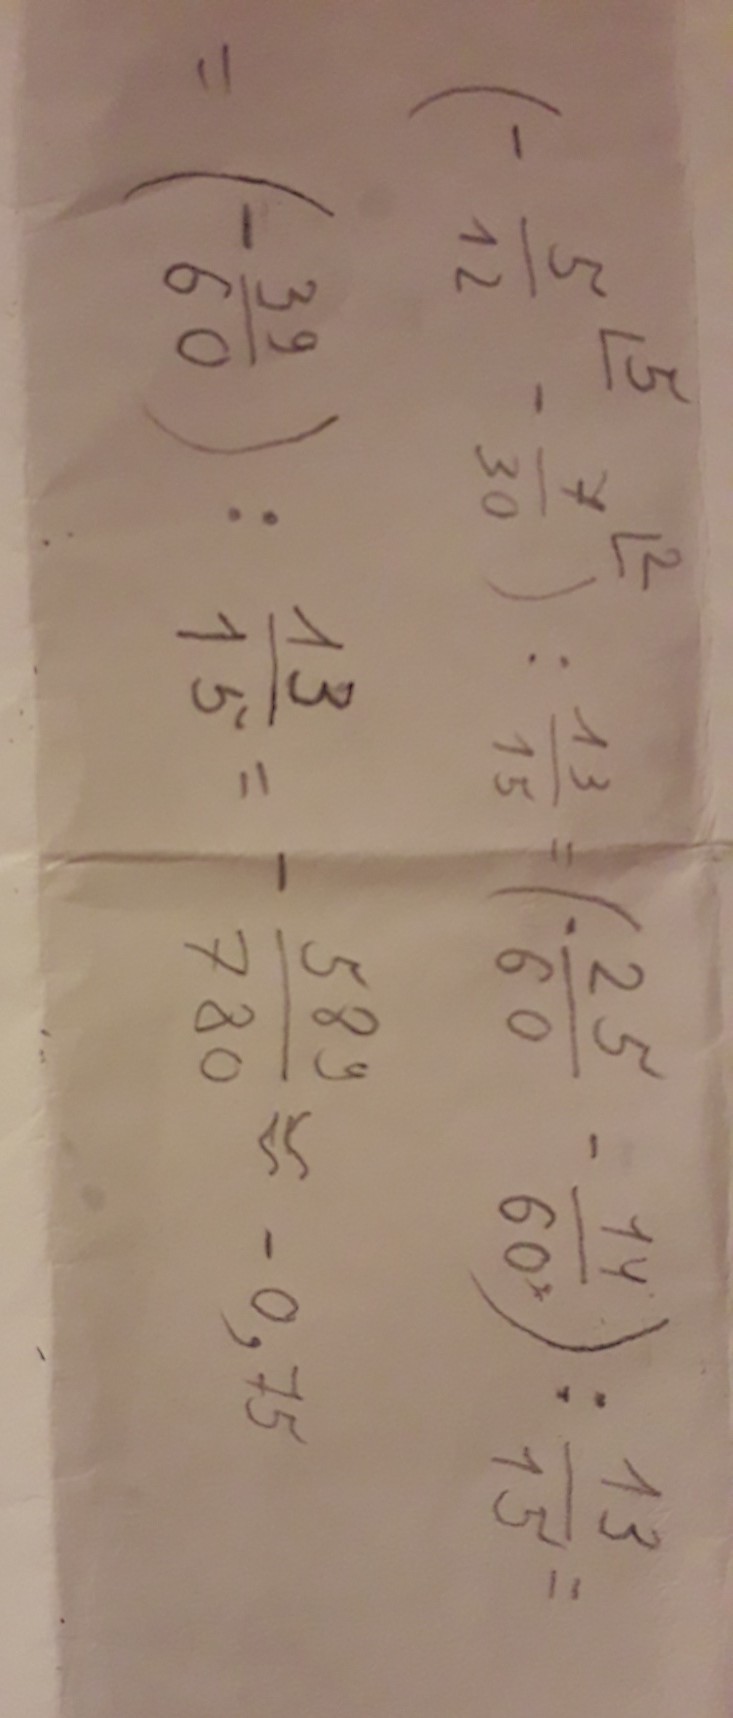 (-5/12 ⌊5 - 7/30 ⌊2) : 13/15 = (-25/60 - 14/60) : 13/15 =
= (-39/60) : 13/15 = - 589/780 ≈ -0,75